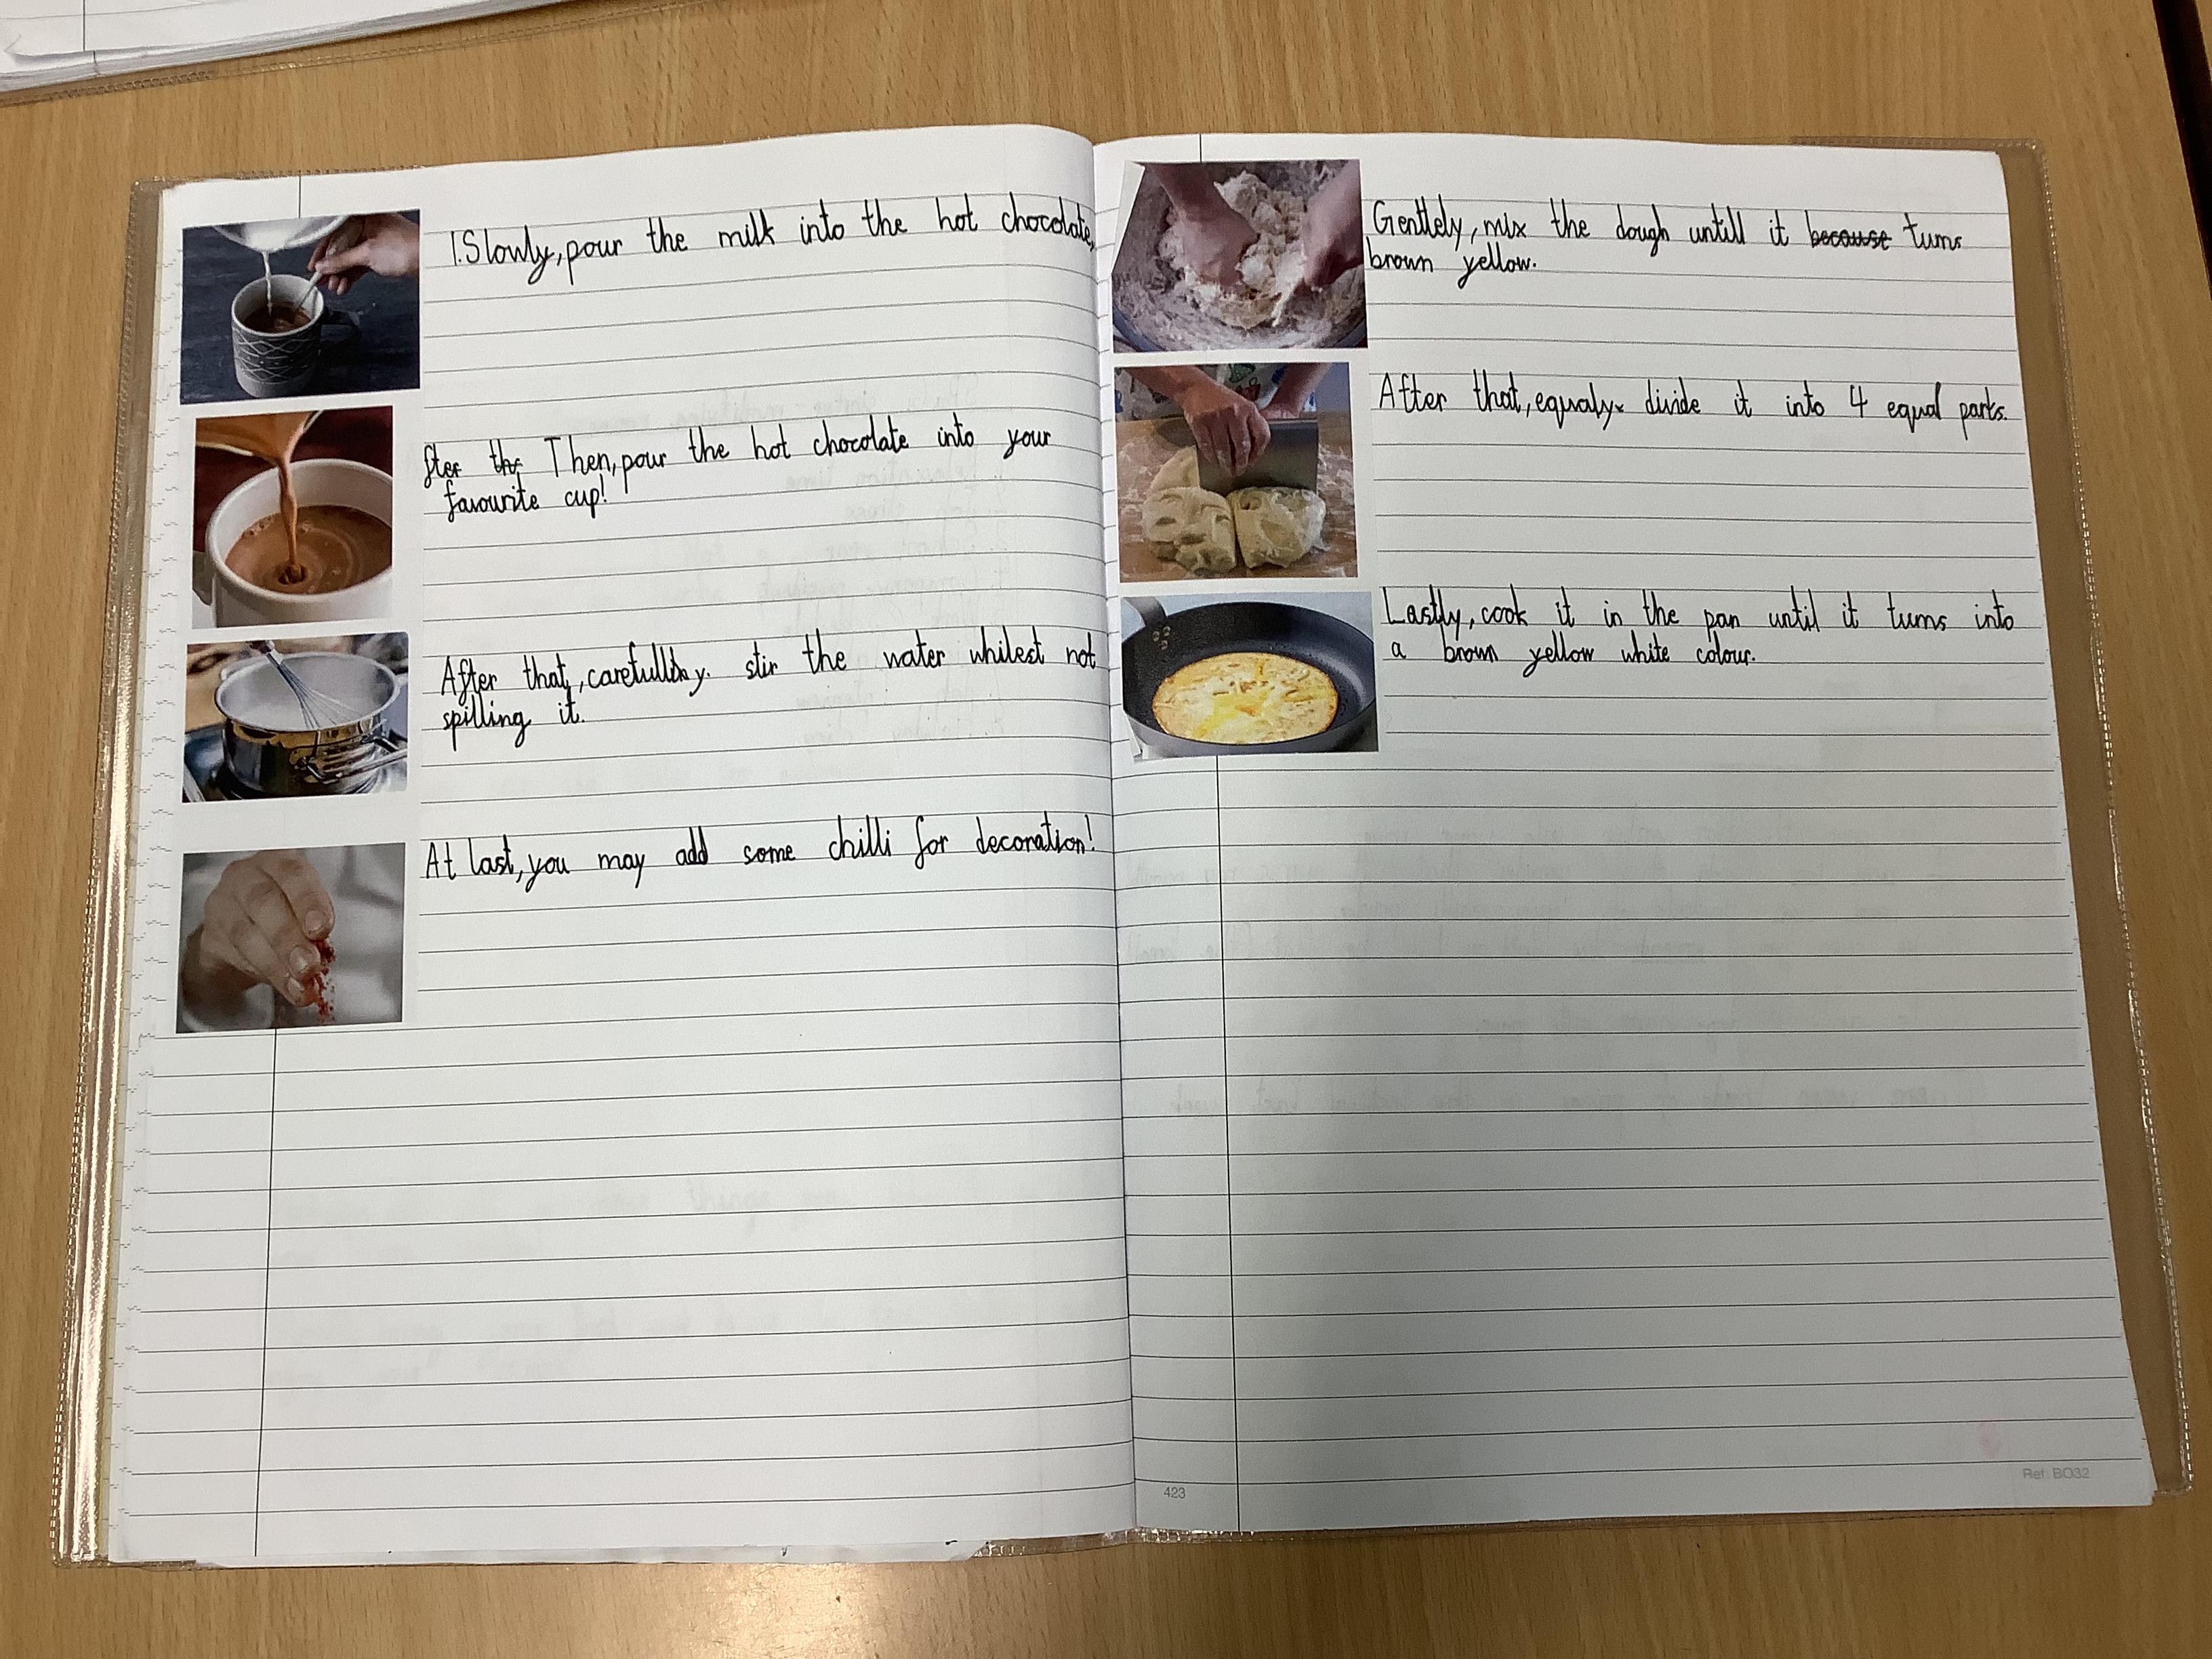 1.Slowly, pour the milk into the hot chocolate,
fter the Then, pour the hot chocolate into your
favourite cup!
After that, carefully. stir the water whilest not
spilling it.
At last, you may add some chilli for decoration!
Gentlely, mix the dough untill it because turns
brown yellow.
After that, equaly divide it into 4 equal parts.
Lastly, cook it in the pan until it turns into
a brown yellow white colour.
423
Ref: BO32